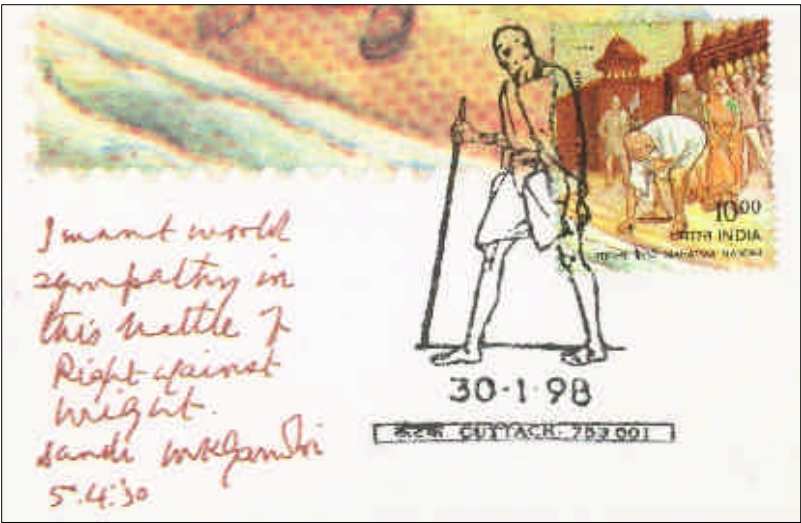 I want world
sympathy in
this battle of
Right against
might.
Dandi MKGandhi
5.4.30
10 00
भारत INDIA
MAHATMA GANDHI
30·1·98
कटक CUTTACK-753 001